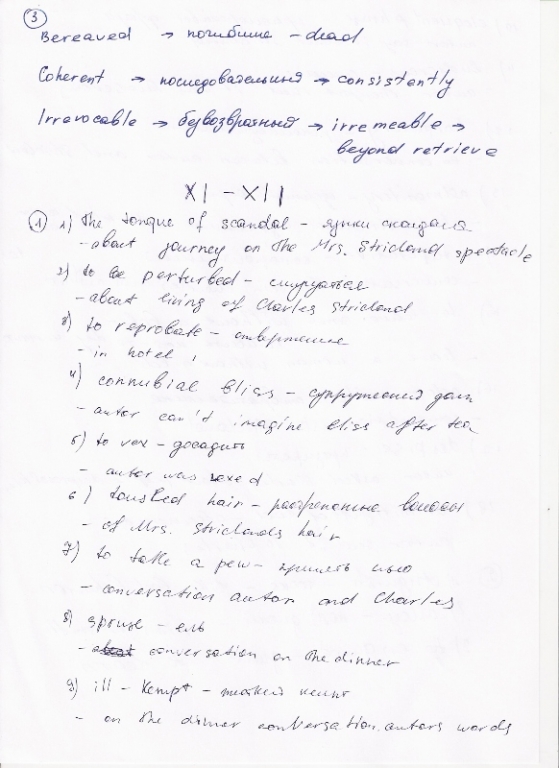 ③
Bereaved → погибшие – dead
Coherent → последовательный → consistently
Irrevocable → безвозвратный → irremeable →
beyond retrieve
XI – XII
① 1) The tongue of scandal – языки скандала
– about journey on the Mrs. Stricland spectacle
2) to be perturbed –
– about living of Charles Stricland
3) to reprobate – отвержение
– in hotel
4) connubial bliss – супружеский
– autor can't imagine bliss after tea
5) to vex – досадить
– autor was vexed
6) tousled hair – растрепанные волосы
– of Mrs. Striclands hair
7) to take a pew –
– conversation autor and Charles
8) spruse – ель
– conversation on the dinner
9) ill – kempt –
– on the dinner conversation autors words